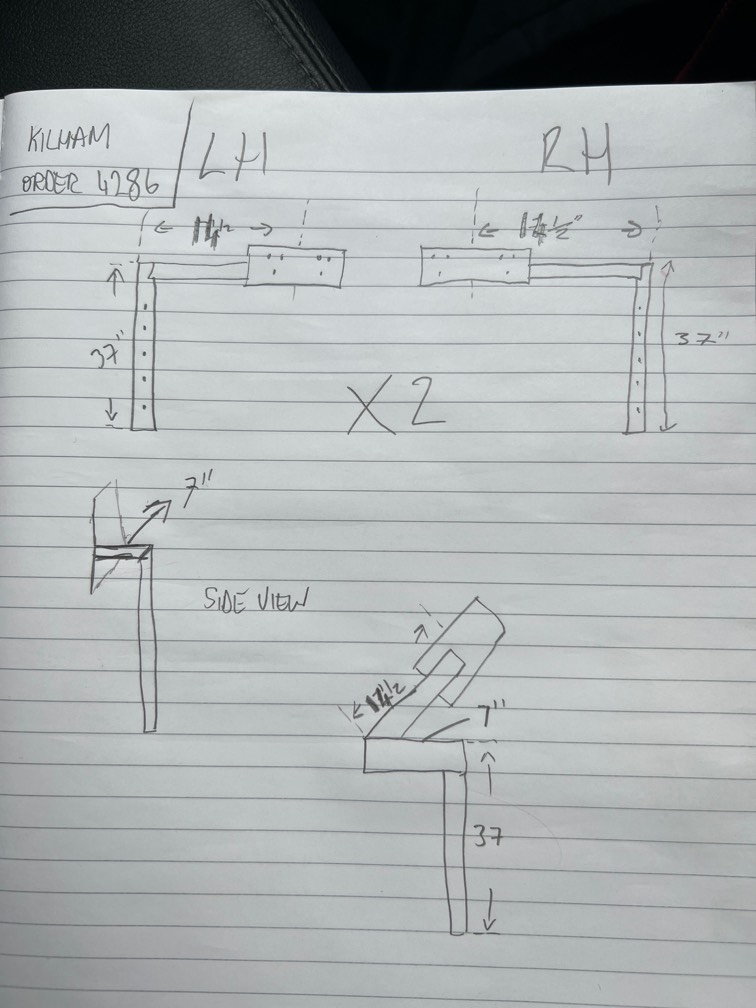 KILHAM
ORDER 4286
LH
RH
14½
14½"
37"
37"
X2
7"
SIDE VIEW
14½
7"
37